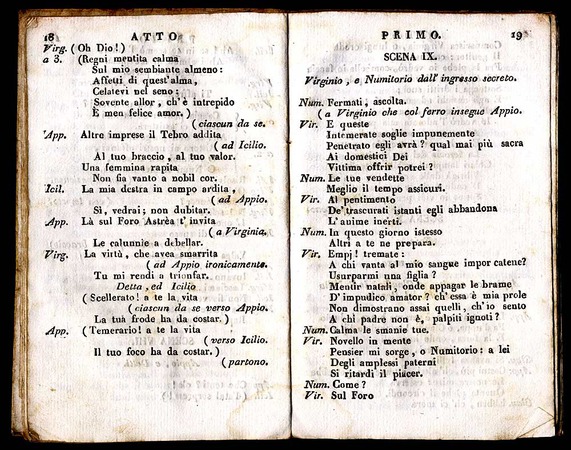 18 ATTO
Virg. (Oh Dio!)
a 3. (Regni mentita calma
Sul mio sembiante almeno:
Affetti di quest'alma,
Celatevi nel seno:
Sovente allor, ch'è intrepido
E men felice amor.)
(ciascun da se.
App. Altre imprese il Tebro addita
(ad Icilio.
Al tuo braccio, al tuo valor.
Una femmina rapita
Non fia vanto a nobil cor.
Icil. La mia destra in campo ardita,
(ad Appio.
Sì, vedrai; non dubitar.
App. Là sul Foro Astrèa t'invita
(a Virginia.
Le calunnie a debellar.
Virg. La virtù, che avea smarrita
(ad Appio ironicamente.
Tu mi rendi a trionfar.
Detta, ed Icilio
(Scellerato! a te la vita
(ciascun da se verso Appio.
La tua frode ha da costar.)
App. (Temerario! a te la vita
(verso Icilio.
Il tuo foco ha da costar.)
(partono.
PRIMO. 19
SCENA IX.
Virginio, e Numitorio dall'ingresso secreto.
Num. Fermati, ascolta.
(a Virginio che col ferro insegue Appio.
Vir. E queste
Intemerate soglie impunemente
Penetrato egli avrà? qual mai più sacra
Ai domestici Dei
Vittima offrir potrei?
Num. Le tue vendette
Meglio il tempo assicuri.
Vir. Al pentimento
De' trascurati istanti egli abbandona
L'anime inerti.
Num. In questo giorno istesso
Altri a te ne prepara.
Vir. Empj! tremate:
A chi vanta al mio sangue impor catene?
Usurparmi una figlia?
Mentir natali, onde appagar le brame
D'impudico amator? ch'essa è mia prole
Non dimostrano assai quelli, ch'io sento
A chi padre non è, palpiti ignoti?
Num. Calma le smanie tue.
Vir. Novello in mente
Pensier mi sorge, o Numitorio: a lei
Degli amplessi paterni
Si ritardi il piacer.
Num. Come?
Vir. Sul Foro